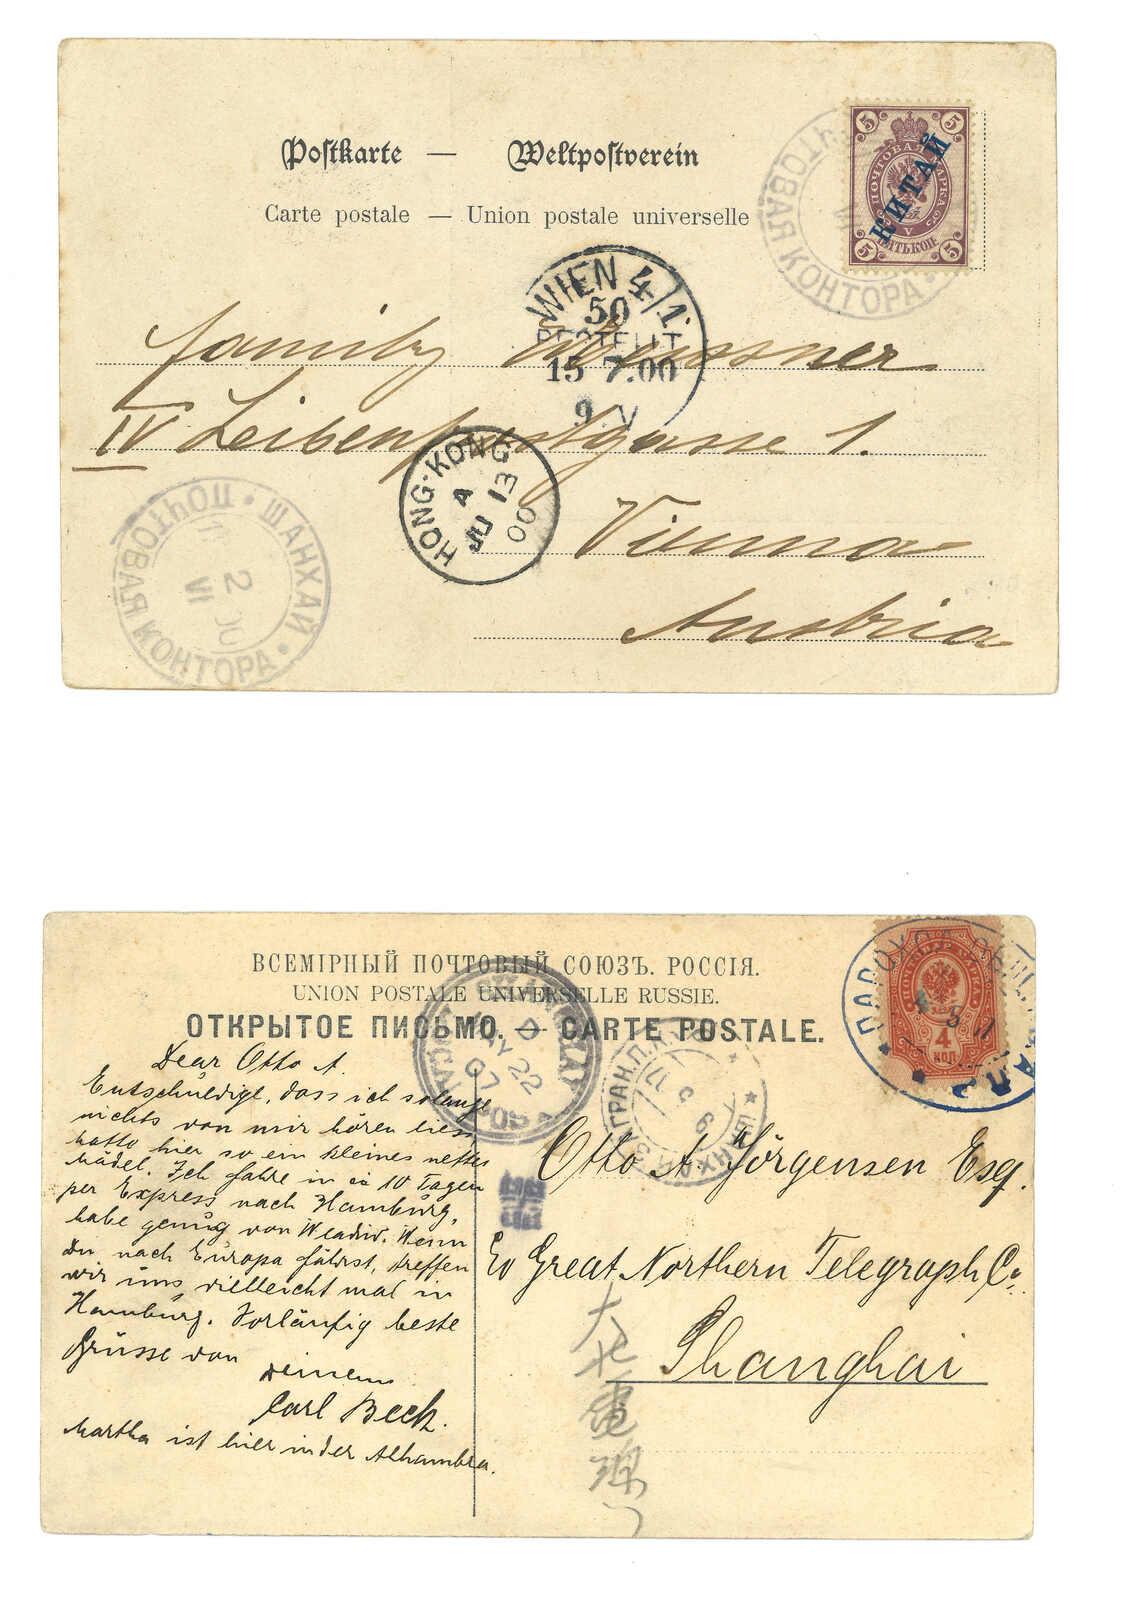 Postkarte — Weltpostverein
Carte postale — Union postale universelle
5 5
ПОЧТОВАЯ МАРКА
КИТАЙ
ПЯТЬ КОП
5 5
ПОЧТОВАЯ КОНТОРА
WIEN 4/1
50
BESTELLT
15 7.00
9 V
Family Meissner
IV Leibenfrostgasse 1.
HONG-KONG
A
JU 13
00
Vienna
Austria
ШАНХАЙ ПОЧТОВАЯ КОНТОРА
2
VI
ВСЕМІРНЫЙ ПОЧТОВЫЙ СОЮЗЪ. РОССІЯ.
UNION POSTALE UNIVERSELLE RUSSIE.
ОТКРЫТОЕ ПИСЬМО. — CARTE POSTALE.
ПОЧТОВАЯ МАРКА
4
КОП
D
MAY 22
07
Dear Otto A.
Entschuldige, dass ich solange
nichts von mir hören liess
hatte hier so ein kleines nettes
Mädel. Ich fahre in ca 10 Tagen
per Express nach Hamburg,
habe genug von Wladiv. Wenn
Du nach Europa fährst, treffen
wir uns vielleicht mal in
Hamburg. Vorläufig beste
Grüsse von
deinem
Carl Beck.
Martha ist hier in der Alhambra.
Otto A. Jörgensen Esq.
Co Great Northern Telegraph Co.
Shanghai
大北電線